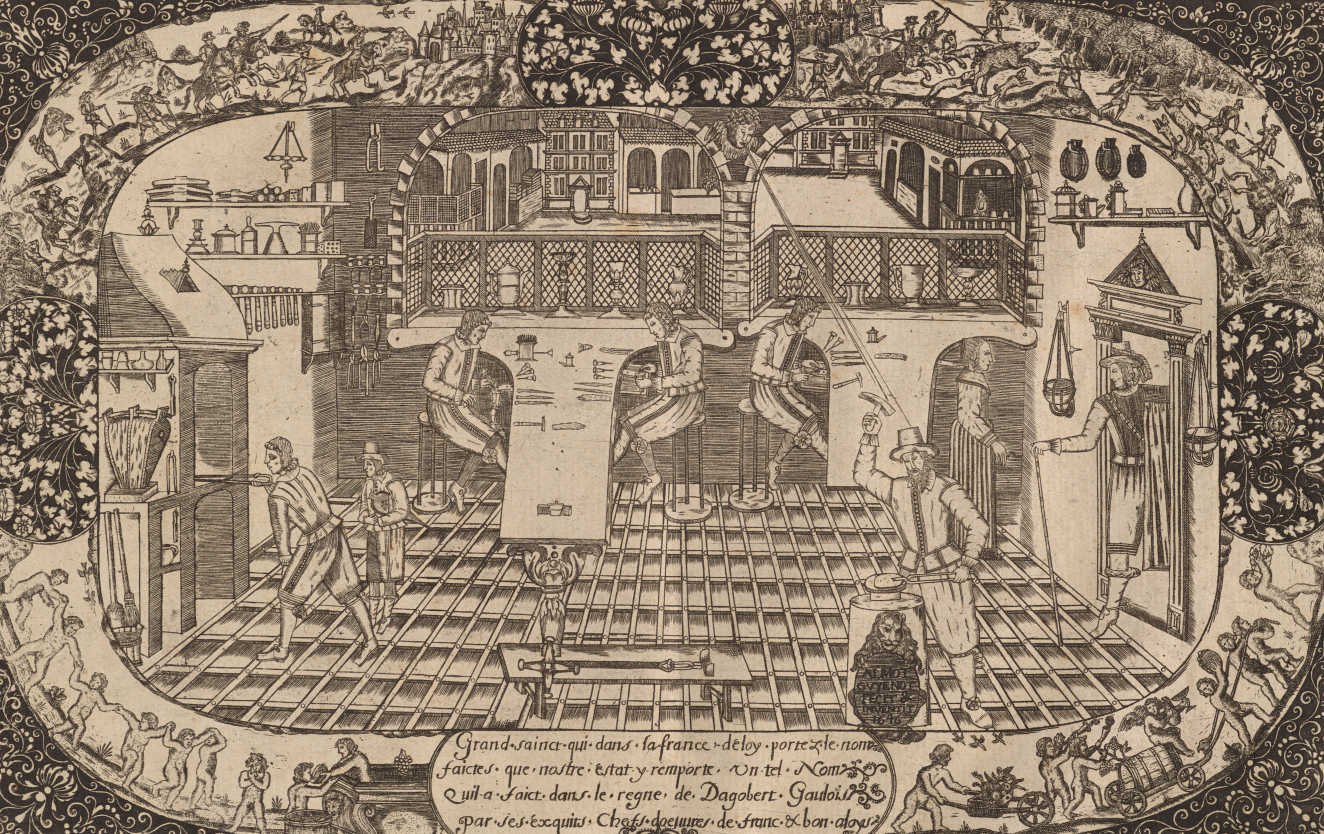 Grand·sainct·qui·dans·la·france·deloy·portez·le·nom
faictes·que·nostre·estat·y·remporte·Un·tel·Nom
Quil·a·faict·dans·le·regne·de·Dagobert·Gaulois
par·ses·exquits·Chefs·doeuures·de·franc·&·bon·aloys